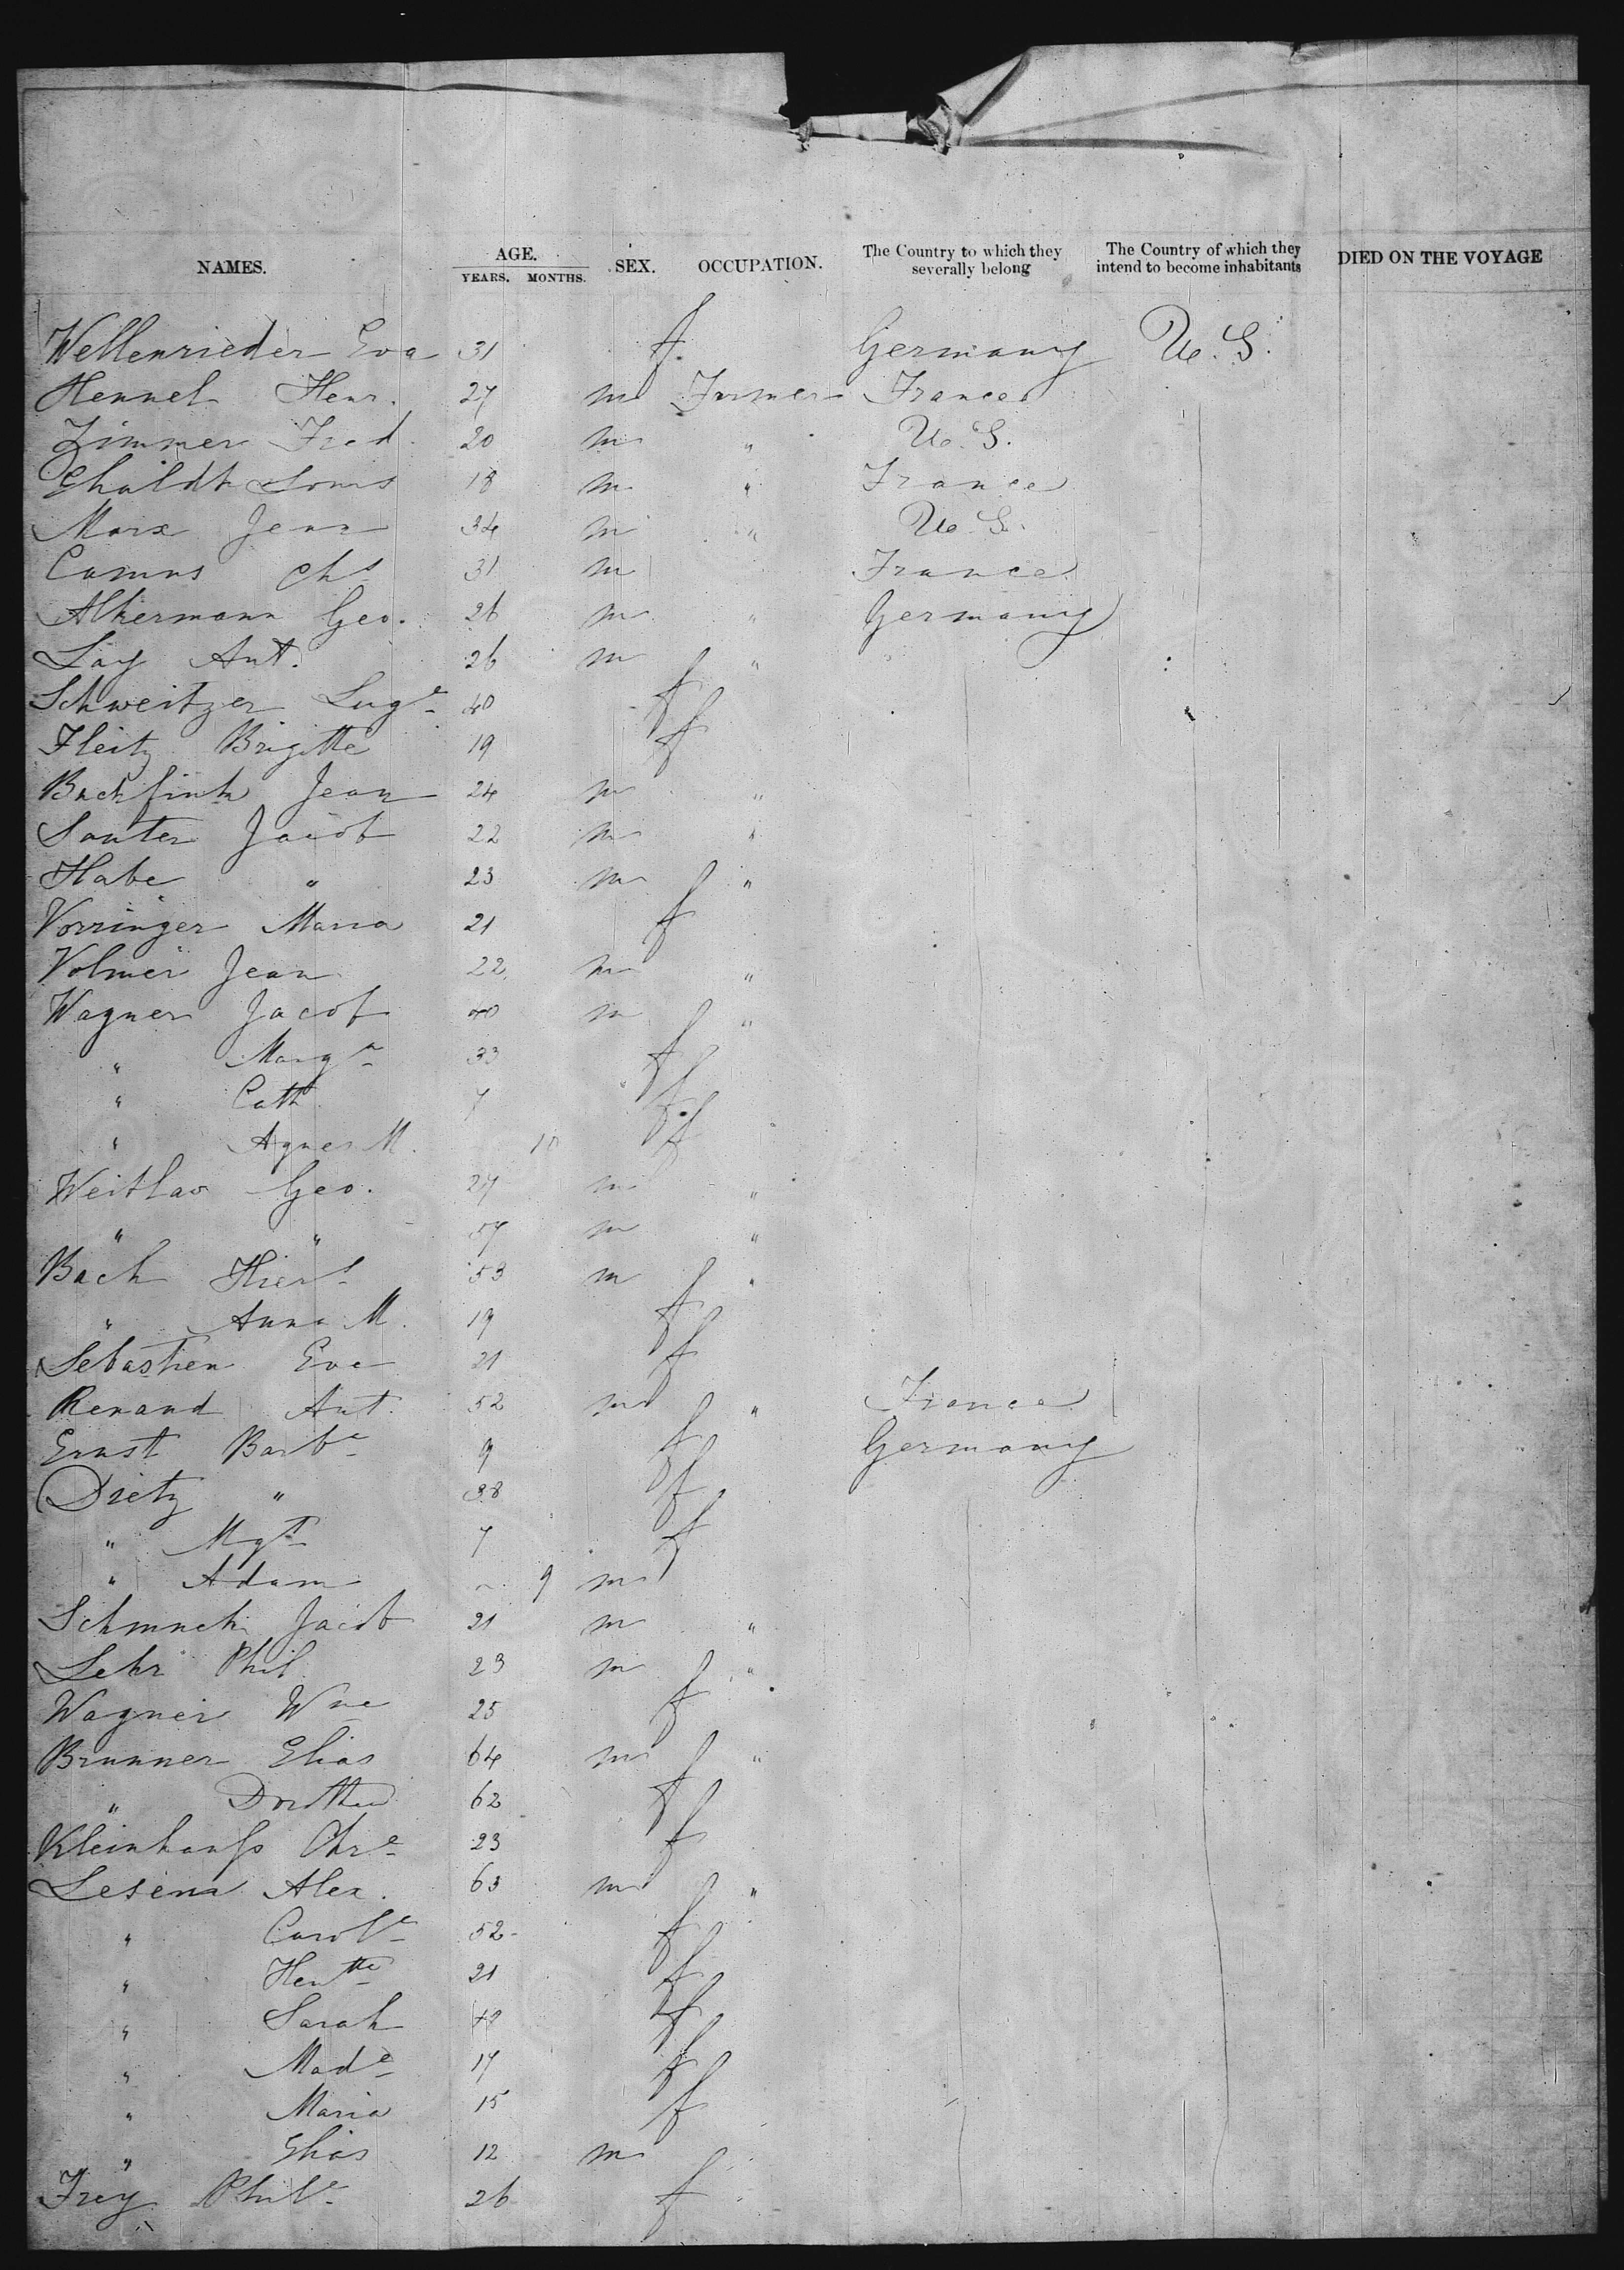 NAMES. AGE. YEARS. MONTHS. SEX. OCCUPATION. The Country to which they severally belong The Country of which they intend to become inhabitants DIED ON THE VOYAGE
Wellenrieder Eva 31 f. Germany U. S.
Hennel Henr. 27 m Farmer France
Zimmer Fred. 20 m " U. S.
Louis 18 m " France
Marx Jean 34 m " U. S.
Camus Chs 31 m France
Alkermann Geo. 26 m " Germany
Lay Ant. 26 m "
Schweitzer 40 f
Fleitz Brigitte 19 f
Backfink Jean 24 m "
Sauter Jacob 22 m "
Habe " 23 m "
Vorringer Maria 21 f
Volmer Jean 22 m "
Wagner Jacob 40 m "
" Marg 33 f
" Cath 7 f.
" Agnes M. 10 f
Geo. 27 m "
" " 57 m "
Bach 53 m "
" Anna M. 19 f
Sebastien Eva 21 f
Renaud Ant. 52 m " France
Ernst Barbe 9 f Germany
Dietz " 38 f
" Mgt 7 f
" Adam 9 m
Jacob 21 m "
Lehr Phil 23 m "
Wagner Wne 25 f
Brunner Elias 64 m "
" Dorothea 62 f
Kleinhanss Chre 23 f
Alex. 63 m "
" Carole 52 f
" Hentte 21 f
" Sarah f
" Made 17 f
" Maria 15 f
" Elias 12 m
Frey Phile 26 f